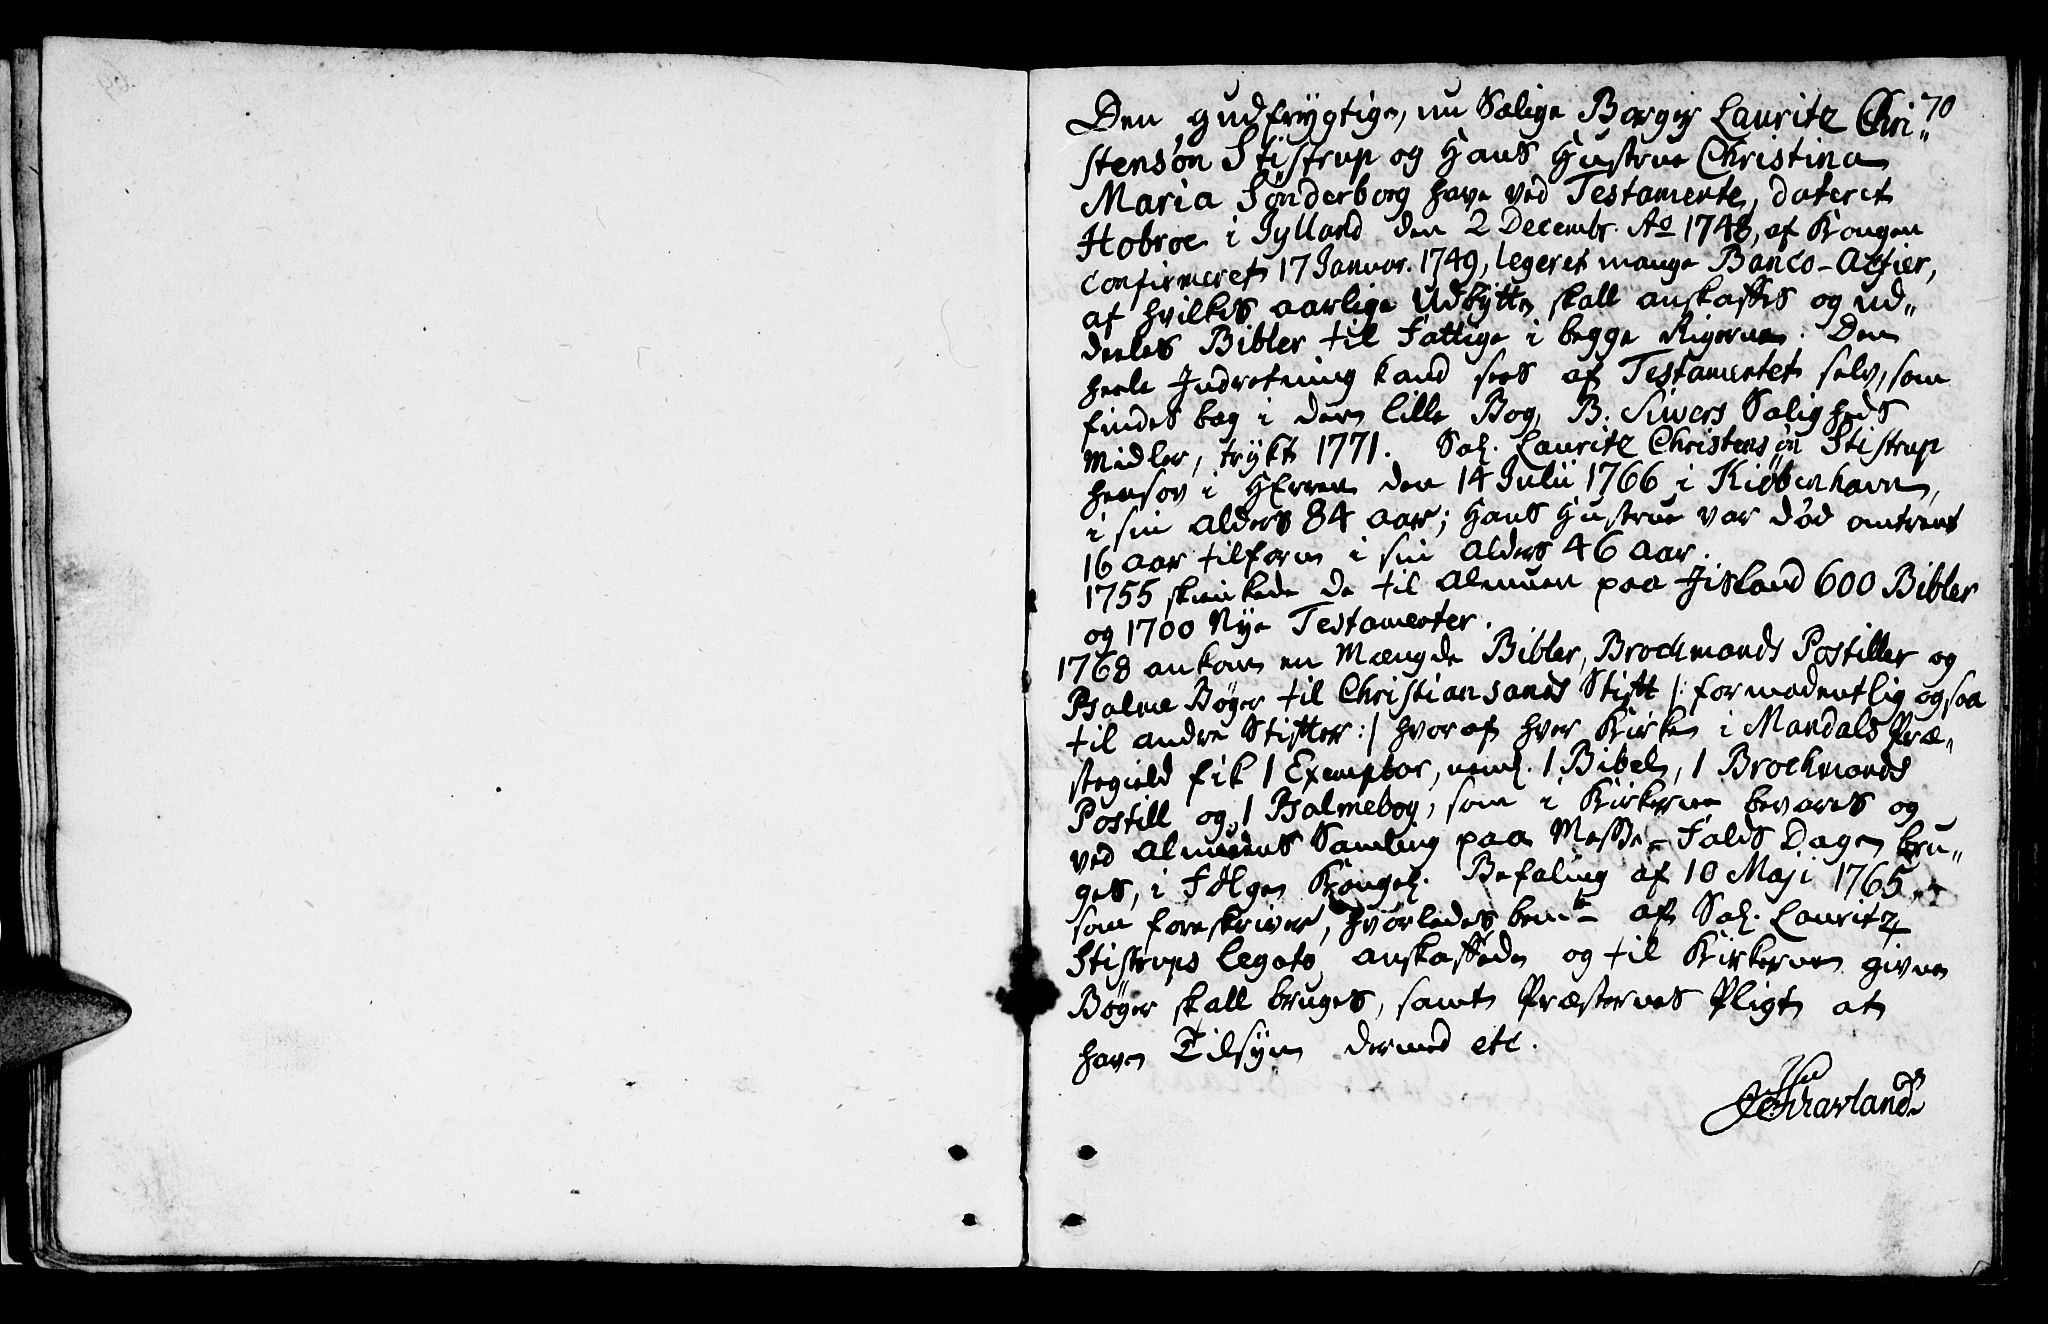 70
Den gudfrygtige, nu Salige Borger Lauritz Chri„
stensøn Stistrup og Hans Hustrue Christina
Maria Sønderborg have ved Testamente, dateret
Hobroe i Jylland den 2 Decembr. Ao 1748, af Kongen
confirmeret 17 Januar. 1749, legeret mange Banco-Actier,
af hvilkes aarlige Udbytte skall anskaffes og ud„
deeles Bibler til Fattige i begge Rigerne. Den
heele Indretning kand sees af Testamentet selv, som
findes bag i den lille Bog, B. Siwers Saligheds
Midler, trykt 1771. Sal. Lauritz Christensøn Stistrup
hensov i HErren den 14 Julii 1766 i Kiøbenhavn,
i sin Alders 84 aar; Hans Hustrue var død omtrent
16 aar tilforn i sin Alders 46 Aar.
1755 skienkede de til Almuen paa Jisland 600 Bibler
og 1700 Nye Testamenter.
1768 ankom en Mængde Bibler, Brochmands Postiller og
Psalme Bøger til Christiansands Stift /: formodentlig ogsaa
til andre Stifter :/ hvoraf hver Kirke i Mandals Præ„
stegield fik 1 Exemplar, neml. 1 Bibel, 1 Brochmands
Postill og 1 Psalmebog, som i Kirkerne bevares og
ved Almuens Samling paa Messe-Falds Dagen bru„
ges, i Følge Kongel. Befaling af 10 Maji 1765,
som foreskriver, hvorledes bem.te af Sal. Lauritz
Stistrups Legato anskaffede og til Kirkerne givne
Bøger skall bruges, samt Præsternes Pligt at
have Tilsyn dermed etc.